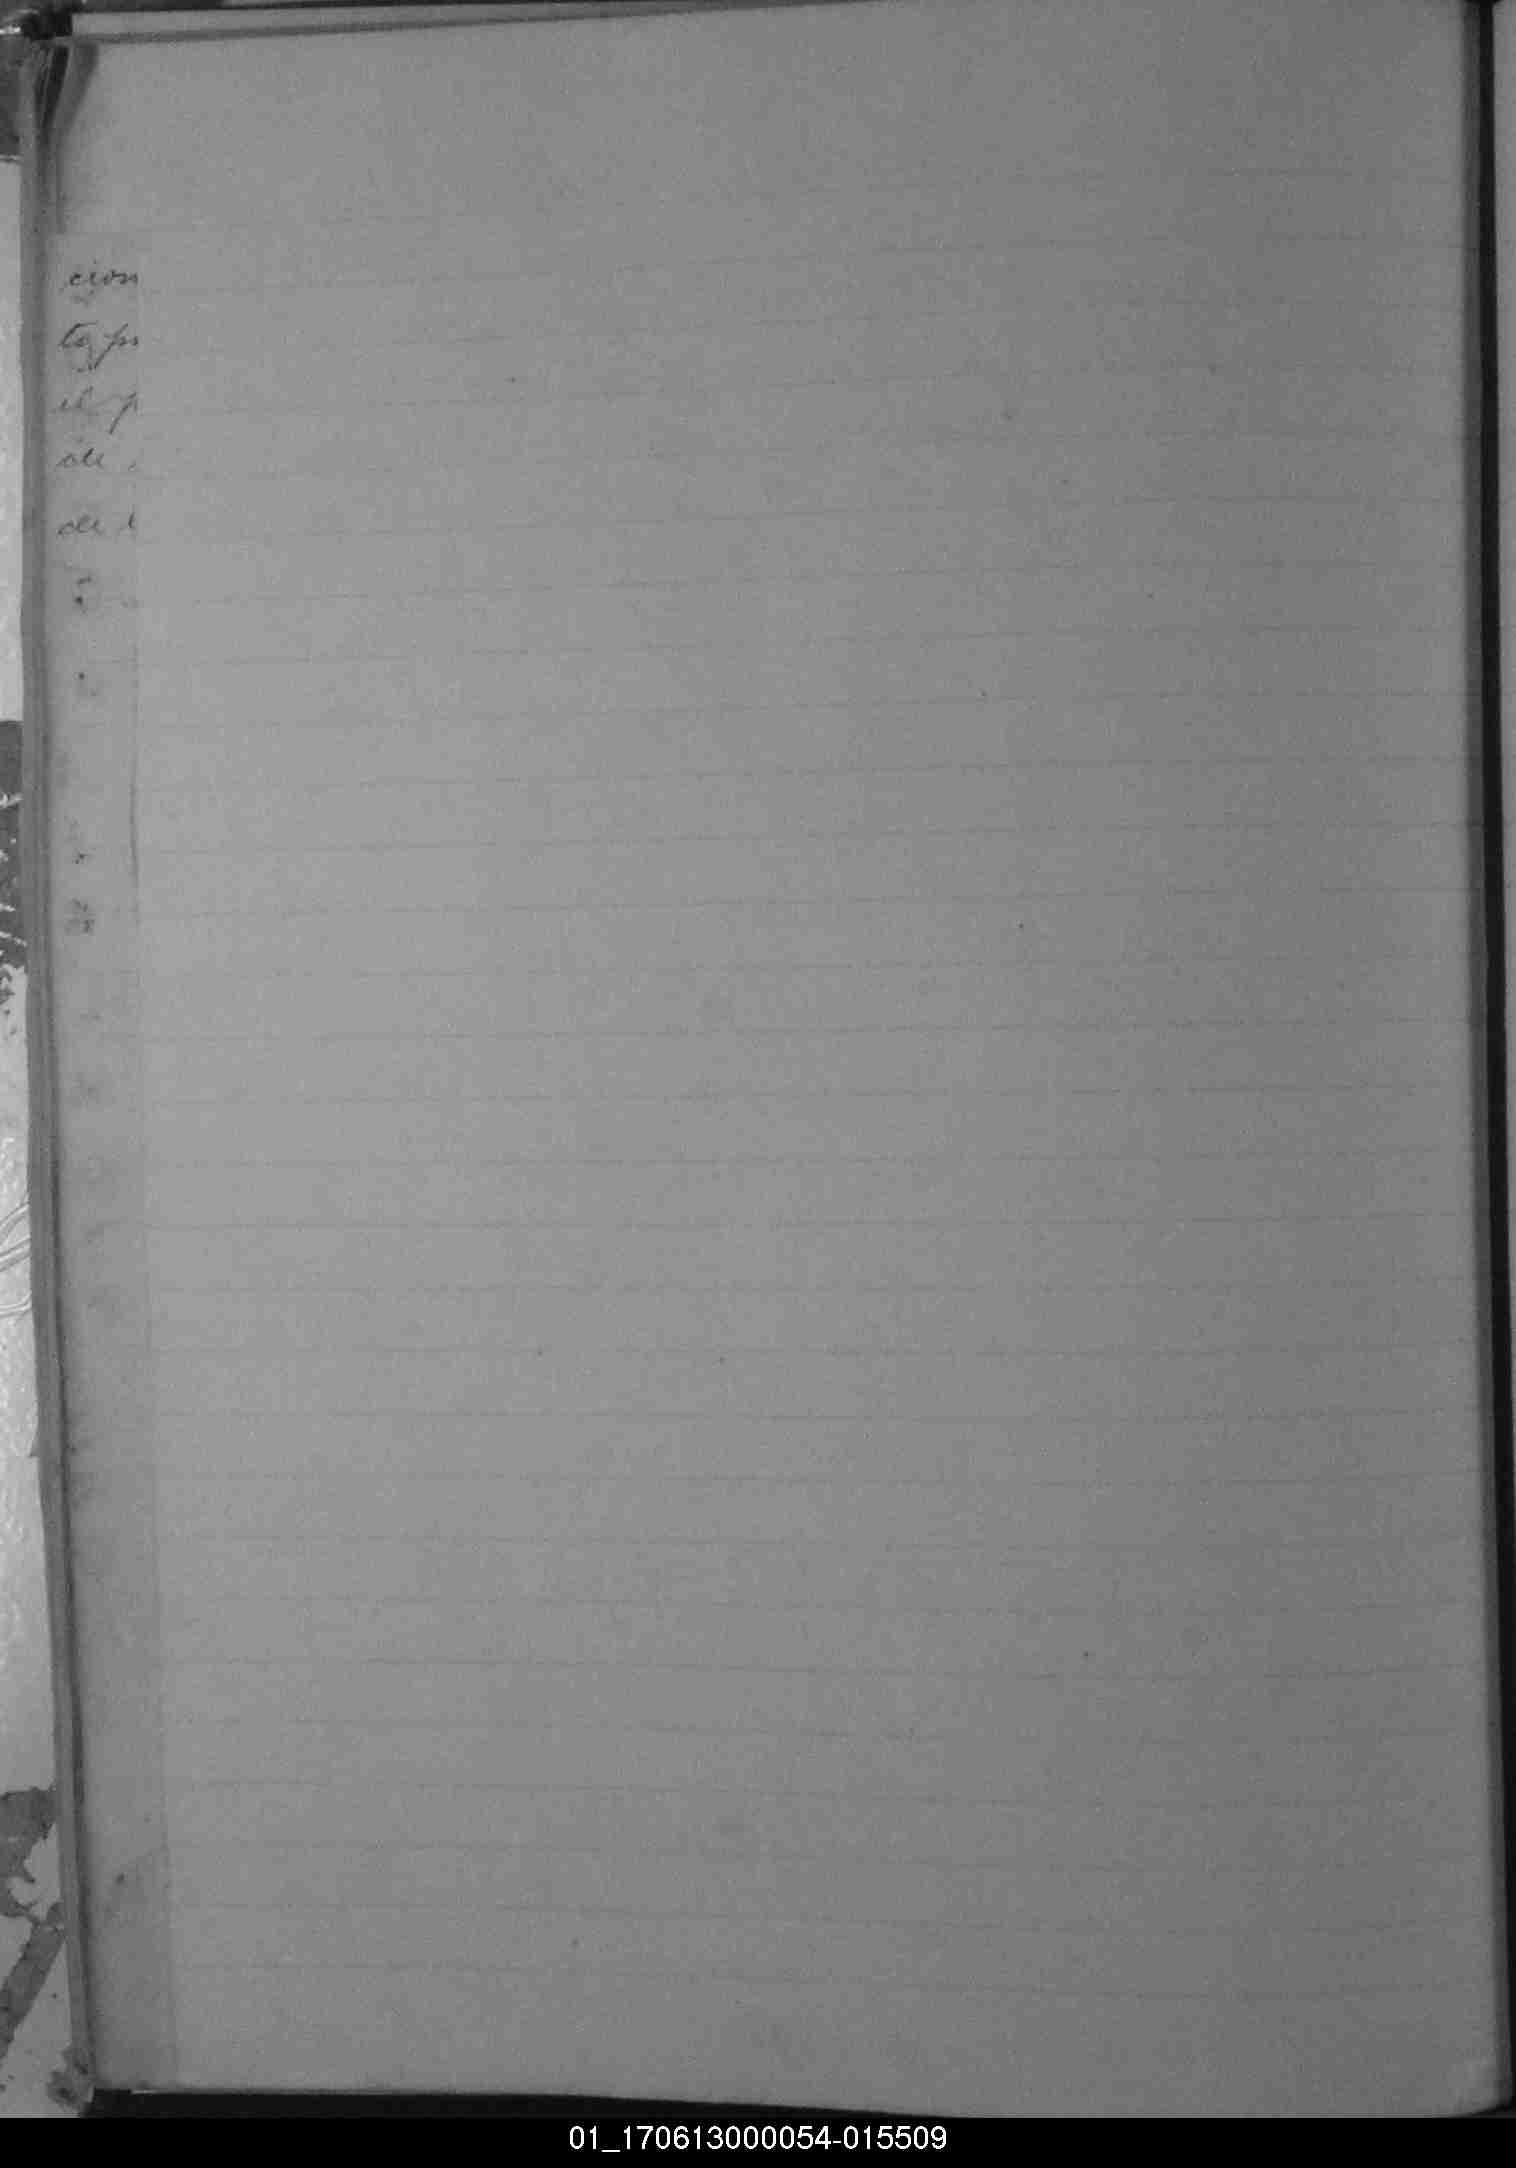 cion
to pr
el p
de
de l
01_170613000054-015509